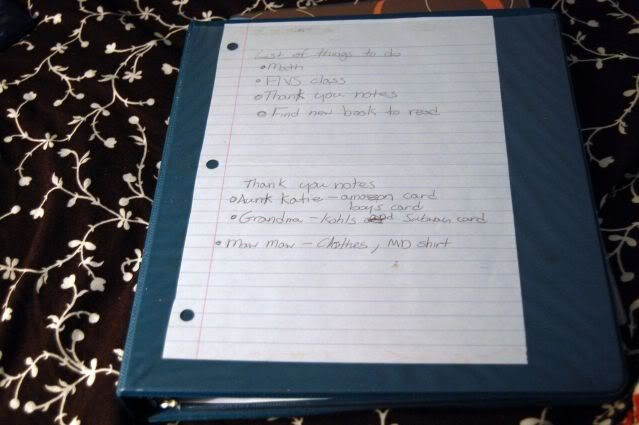 List of things to do
• Math
• FLVS class
• Thank you notes
• Find new book to read
Thank you notes
• Aunt Katie - amazon card
boys card
• Grandma - Kohls and Subway card
• Maw maw - Clothes, MD shirt